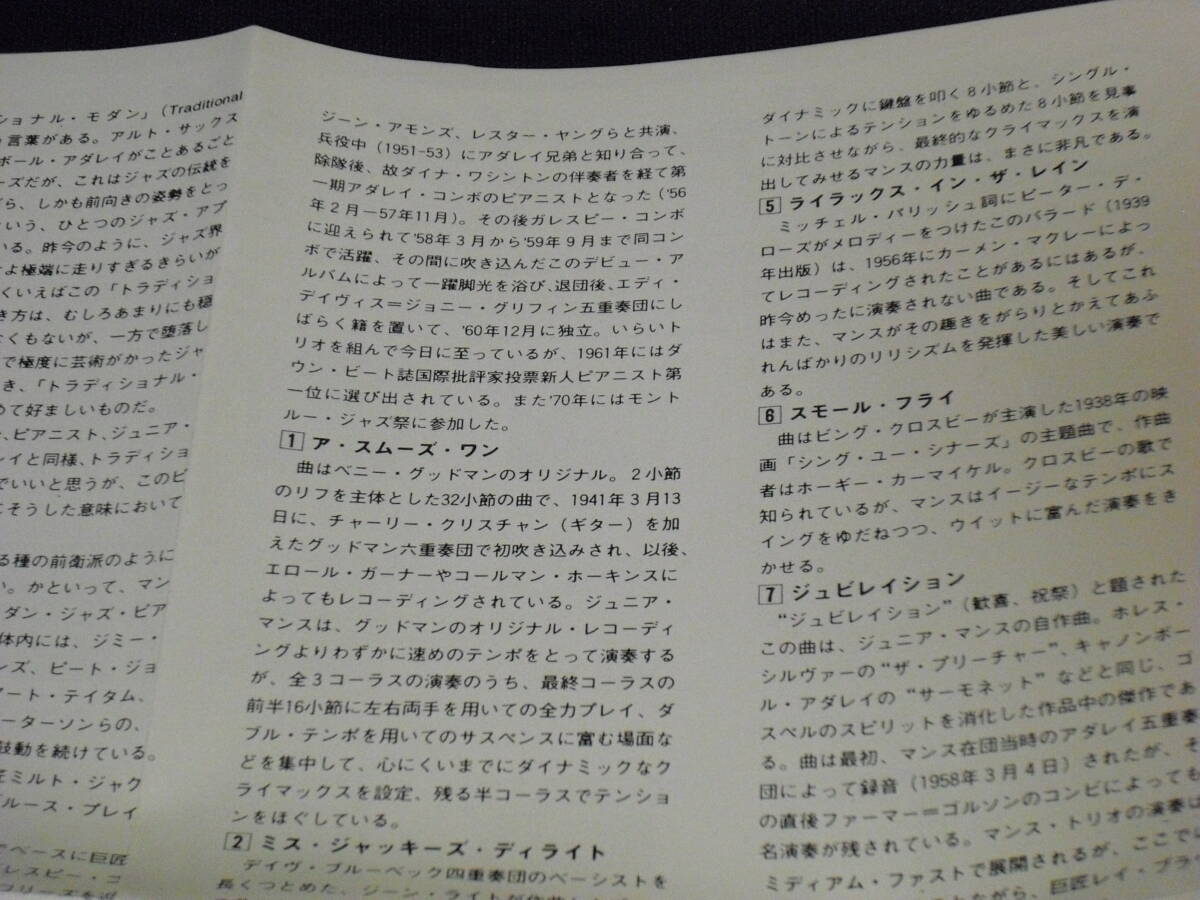 ショナル・モダン」(Traditional
言葉がある。アルト・サックス
ボール・アダレイがことあるごと
ーズだが、これはジャズの伝統を
ら、しかも前向きの姿勢をとっ
いう、ひとつのジャズ・アプ
いる。昨今のように、ジャズ界
極端に走りすぎるきらいが
くいえばこの「トラディショ
き方は、むしろあまりにも穏
くもないが、一方で堕落し
で極度に芸術がかったジャ
き、「トラディショナル・
めて好ましいものだ。
、ピアニスト、ジュニア・
レイと同様、トラディショ
でいいと思うが、このピ
にそうした意味において
る種の前衛派のように
い。かといって、マン
ダン・ジャズ・ピア
体内には、ジミー・
ンズ、ピート・ジョ
アート・テイタム、
ーターソンらの、
鼓動を続けている。
ミルト・ジャク
ブルース・プレイ
ベースに巨匠
レスピー・コ
ジーン・アモンズ、レスター・ヤングらと共演、
兵役中(1951-53)にアダレイ兄弟と知り合って、
除隊後、故ダイナ・ワシントンの伴奏者を経て第
一期アダレイ・コンボのピアニストとなった('56
年2月―57年11月)。その後ガレスピー・コンボ
に迎えられて'58年3月から'59年9月まで同コン
ボで活躍、その間に吹き込んだこのデビュー・ア
ルバムによって一躍脚光を浴び、退団後、エディ・
デイヴィス=ジョニー・グリフィン五重奏団にし
ばらく籍を置いて、'60年12月に独立。いらいト
リオを組んで今日に至っているが、1961年にはダ
ウン・ビート誌国際批評家投票新人ピアニスト第
一位に選び出されている。また'70年にはモント
ルー・ジャズ祭に参加した。
1 ア・スムーズ・ワン
曲はベニー・グッドマンのオリジナル。2小節
のリフを主体とした32小節の曲で、1941年3月13
日に、チャーリー・クリスチャン(ギター)を加
えたグッドマン六重奏団で初吹き込みされ、以後、
エロール・ガーナーやコールマン・ホーキンスに
よってもレコーディングされている。ジュニア・
マンスは、グッドマンのオリジナル・レコーディ
ングよりわずかに速めのテンポをとって演奏する
が、全3コーラスの演奏のうち、最終コーラスの
前半16小節に左右両手を用いての全力プレイ、ダ
ブル・テンポを用いてのサスペンスに富む場面な
どを集中して、心にくいまでにダイナミックなク
ライマックスを設定、残る半コーラスでテンショ
ンをほぐしている。
2 ミス・ジャッキーズ・ディライト
デイヴ・ブルーベック四重奏団のベーシストを
長くつとめた、ジーン・ライトが作曲した
ダイナミックに鍵盤を叩く8小節と、シングル・
トーンによるテンションをゆるめた8小節を見事
に対比させながら、最終的なクライマックスを演
出してみせるマンスの力量は、まさに非凡である。
5 ライラックス・イン・ザ・レイン
ミッチェル・パリッシュ詞にピーター・デ・
ローズがメロディーをつけたこのバラード(1939
年出版)は、1956年にカーメン・マクレーによっ
てレコーディングされたことがあるにはあるが、
昨今めったに演奏されない曲である。そしてこれ
はまた、マンスがその趣きをがらりとかえてあふ
れんばかりのリリシズムを発揮した美しい演奏で
ある。
6 スモール・フライ
曲はビング・クロスビーが主演した1938年の映
画「シング・ユー・シナーズ」の主題曲で、作曲
者はホーギー・カーマイケル。クロスビーの歌で
知られているが、マンスはイージーなテンポにス
イングをゆだねつつ、ウイットに富んだ演奏をき
かせる。
7 ジュビレイション
“ジュビレイション”(歓喜、祝祭)と題された
この曲は、ジュニア・マンスの自作曲。ホレス・
シルヴァーの“ザ・プリーチャー”、キャノンボー
ル・アダレイの“サーモネット”などと同じ、ゴ
スペルのスピリットを消化した作品中の傑作であ
る。曲は最初、マンス在団当時のアダレイ五重奏
団によって録音(1958年3月4日)されたが、そ
の直後ファーマー=ゴルソンのコンビによっても
名演奏が残されている。マンス・トリオの演奏は
ミディアム・ファストで展開されるが、ここで
ながら、巨匠レイ・ブラ